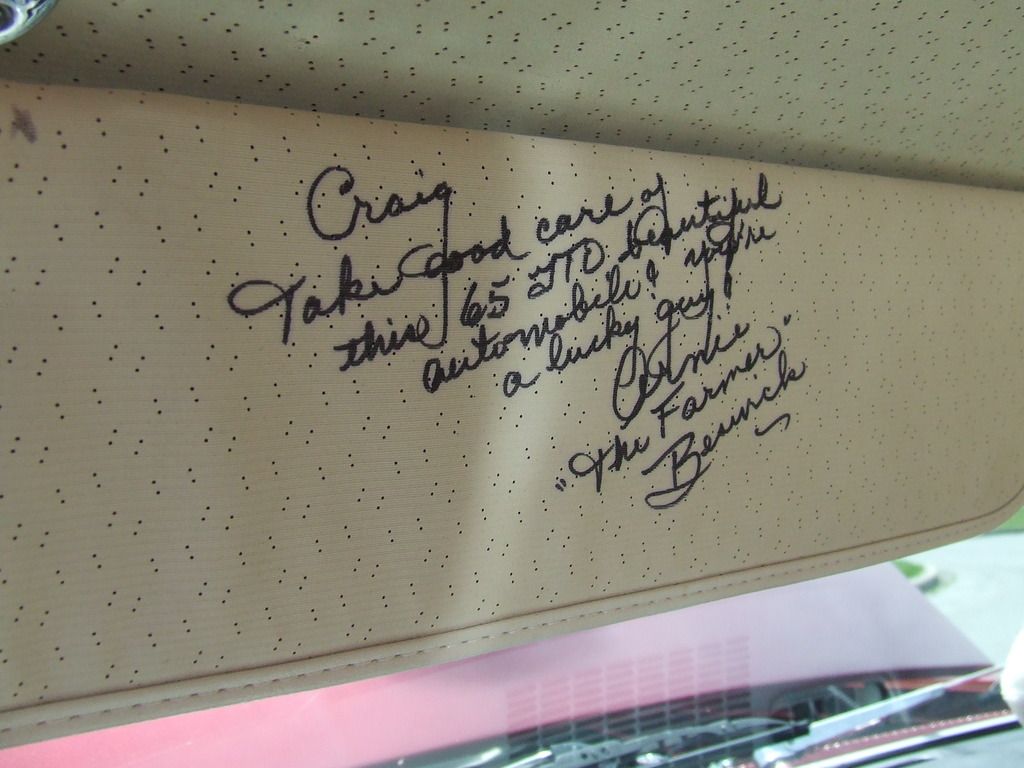 Craig
Take Good care of
this 65 GTO beautiful
automobile! you're
a lucky guy!
Arnie
"The Farmer"
Beswick